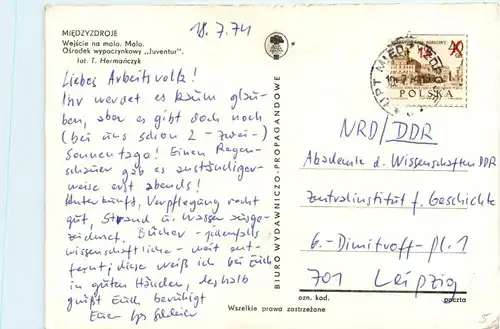 MIĘDZYZDROJE
Wejście na molo. Molo.
Ośrodek wypoczynkowy „Juventur".
fot. T. Hermańczyk
18.7.74
Liebes Arbeitsvolk!
Ihr werdet es kaum glau-
ben, aber es gibt doch noch
(bei uns schon 2 - zwei -)
Sonnentage! Einen Regen-
schauer gab es anständiger-
weise erst abends!
Unterkunft, Verpflegung recht
gut, Strand u. Wasser ausge-
zeichnet. Bücher - jedenfalls
wissenschaftliche - weit ent-
fernt; diese weiß ich bei Euch
in guten Händen, deshalb
grüßt Euch beruhigt
Euer
BIURO WYDAWNICZO-PROPAGANDOWE
POLSKA
NRD/DDR
Akademie d. Wissenschaften DDR
Zentralinstitut f. Geschichte
Dimitroff-pl. 1
701 Leipzig
ozn. kod.
poczta
Wszelkie prawa zastrzeżone